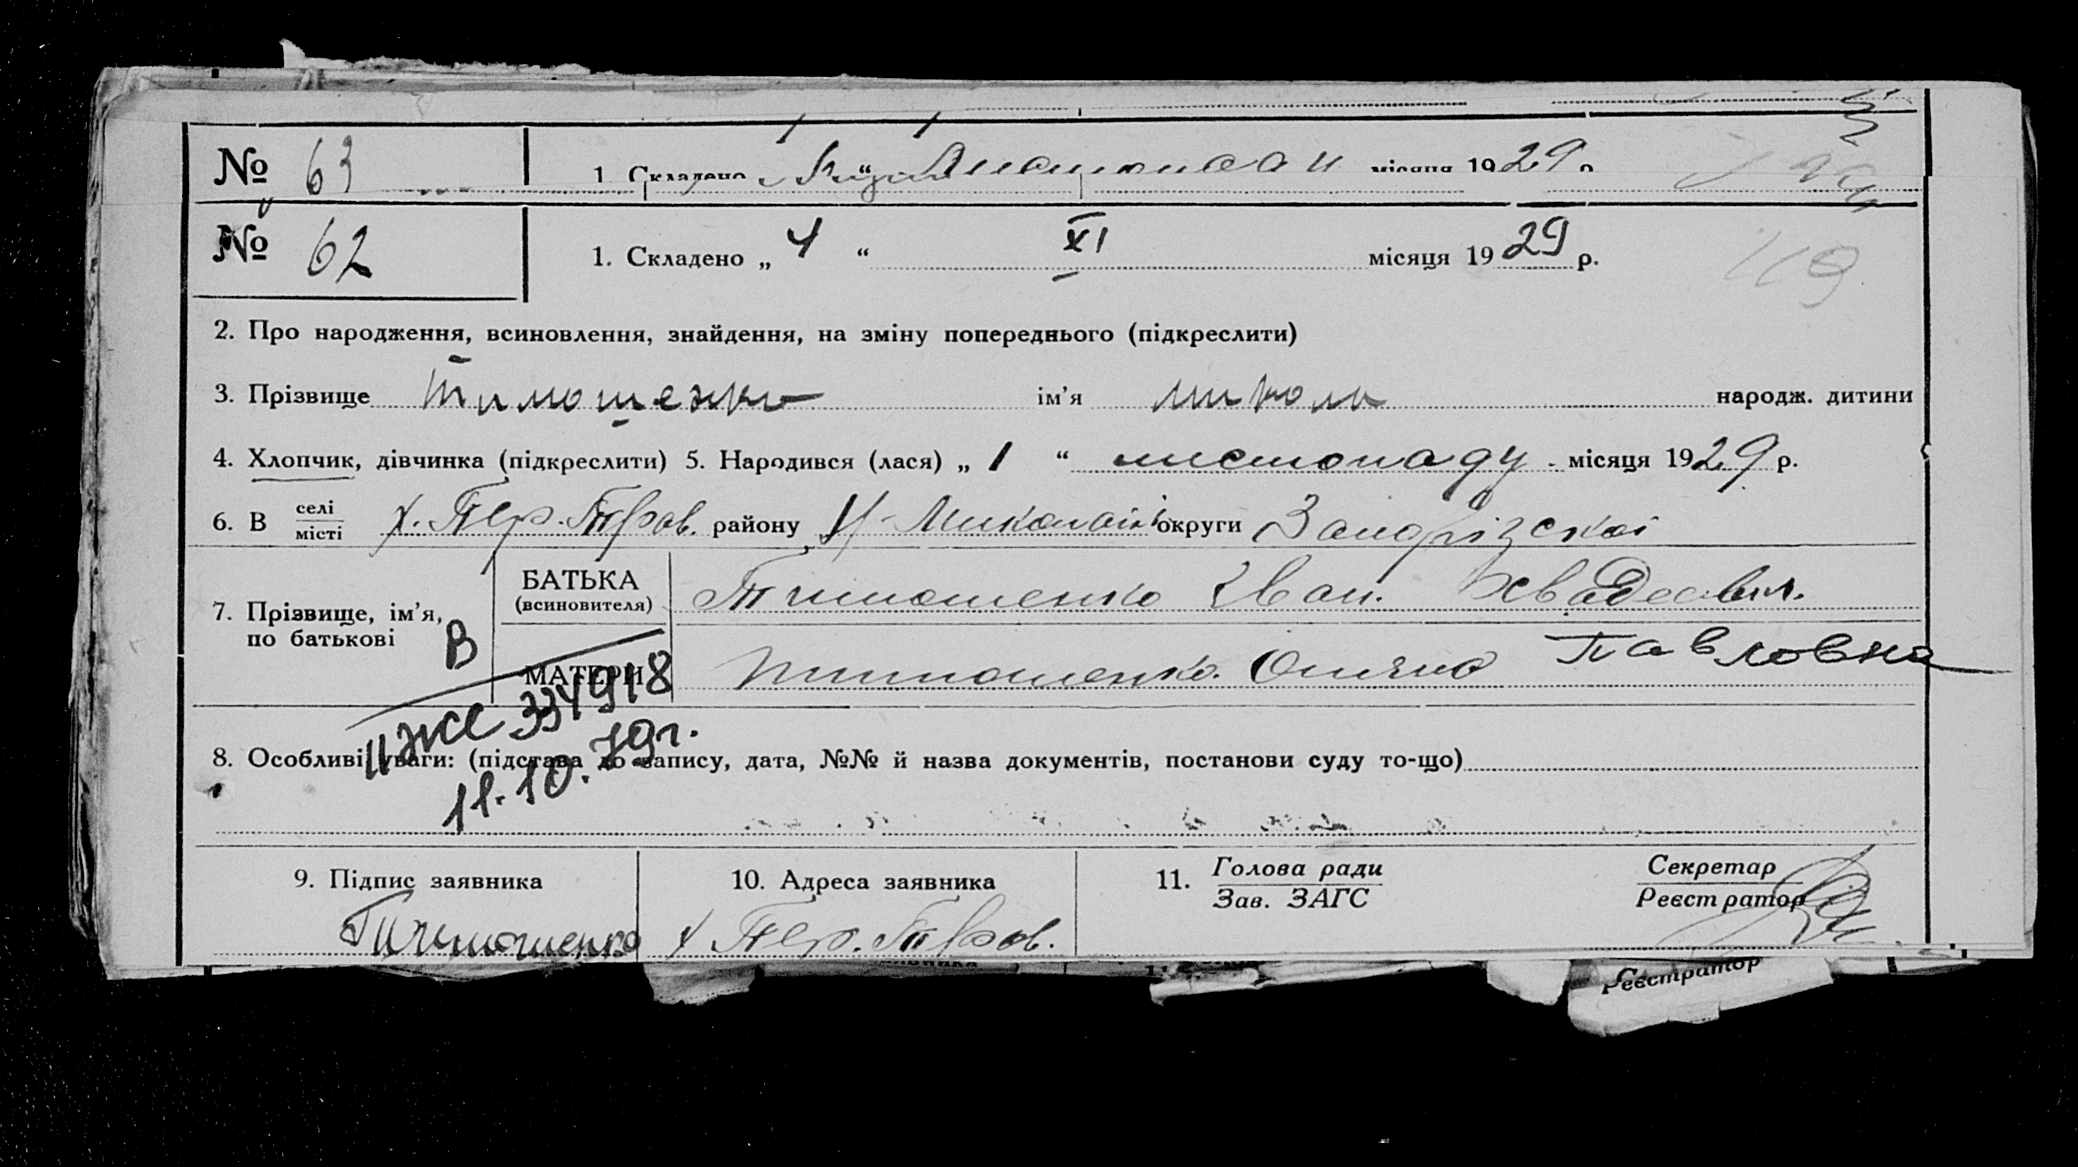 № 63 1. Складено місяця 1929 р.
№ 62 1. Складено „ 4 “ XI місяця 1929 р.
119
2. Про народження, всиновлення, знайдення, на зміну попереднього (підкреслити)
3. Прізвище Тимошенко ім’я Микола народж. дитини
4. Хлопчик, дівчинка (підкреслити) 5. Народився (лася) „ 1 “ листопаду місяця 1929 р.
6. В селі місті х. Пер. Трав. району Н-Миколаїв округи Запорізскої
7. Прізвище, ім’я, по батькові
БАТЬКА (всиновителя) Тимошенко Іван
МАТЕРИ Тимошенко Павловна
В
ІІ ЖС 334918
11.10.79г.
8. Особливі уваги: (підстава до запису, дата, №№ й назва документів, постанови суду то-що)
9. Підпис заявника 10. Адреса заявника 11. Голова ради Зав. ЗАГС Секретар Реєстратор
Тимошенко х Пер. Трав.
Реєстратор